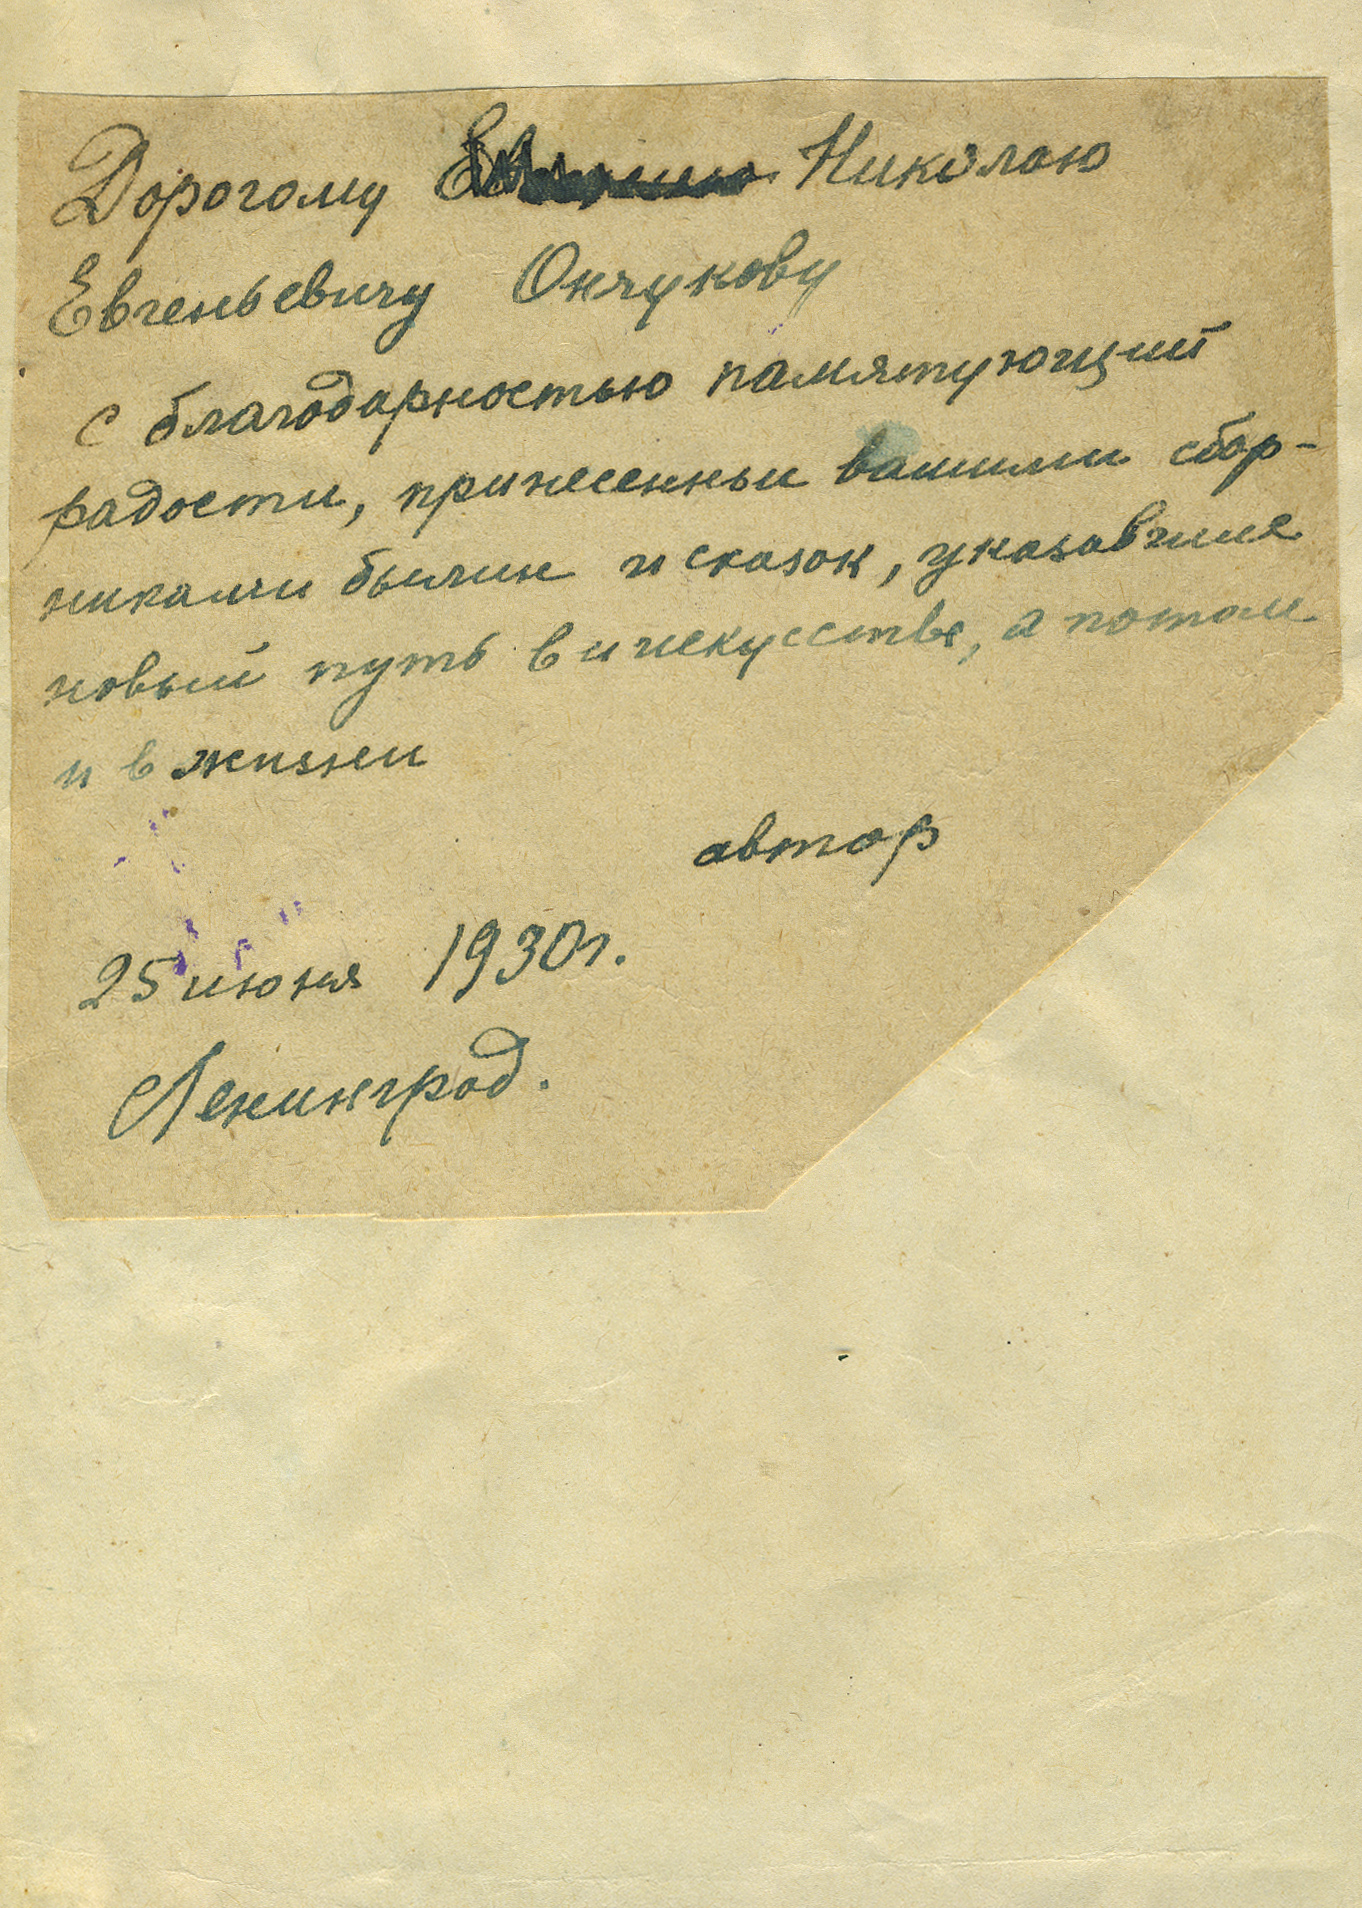 Дорогому Николаю
Евгеньевичу Ончукову
с благодарностью памятующий
радости, принесенныи вашими сбор-
никами былин и сказок, указавшие
новый путь в искусстве, а потом
и в жизни
автор
25 июня 1930г.
Ленинград.